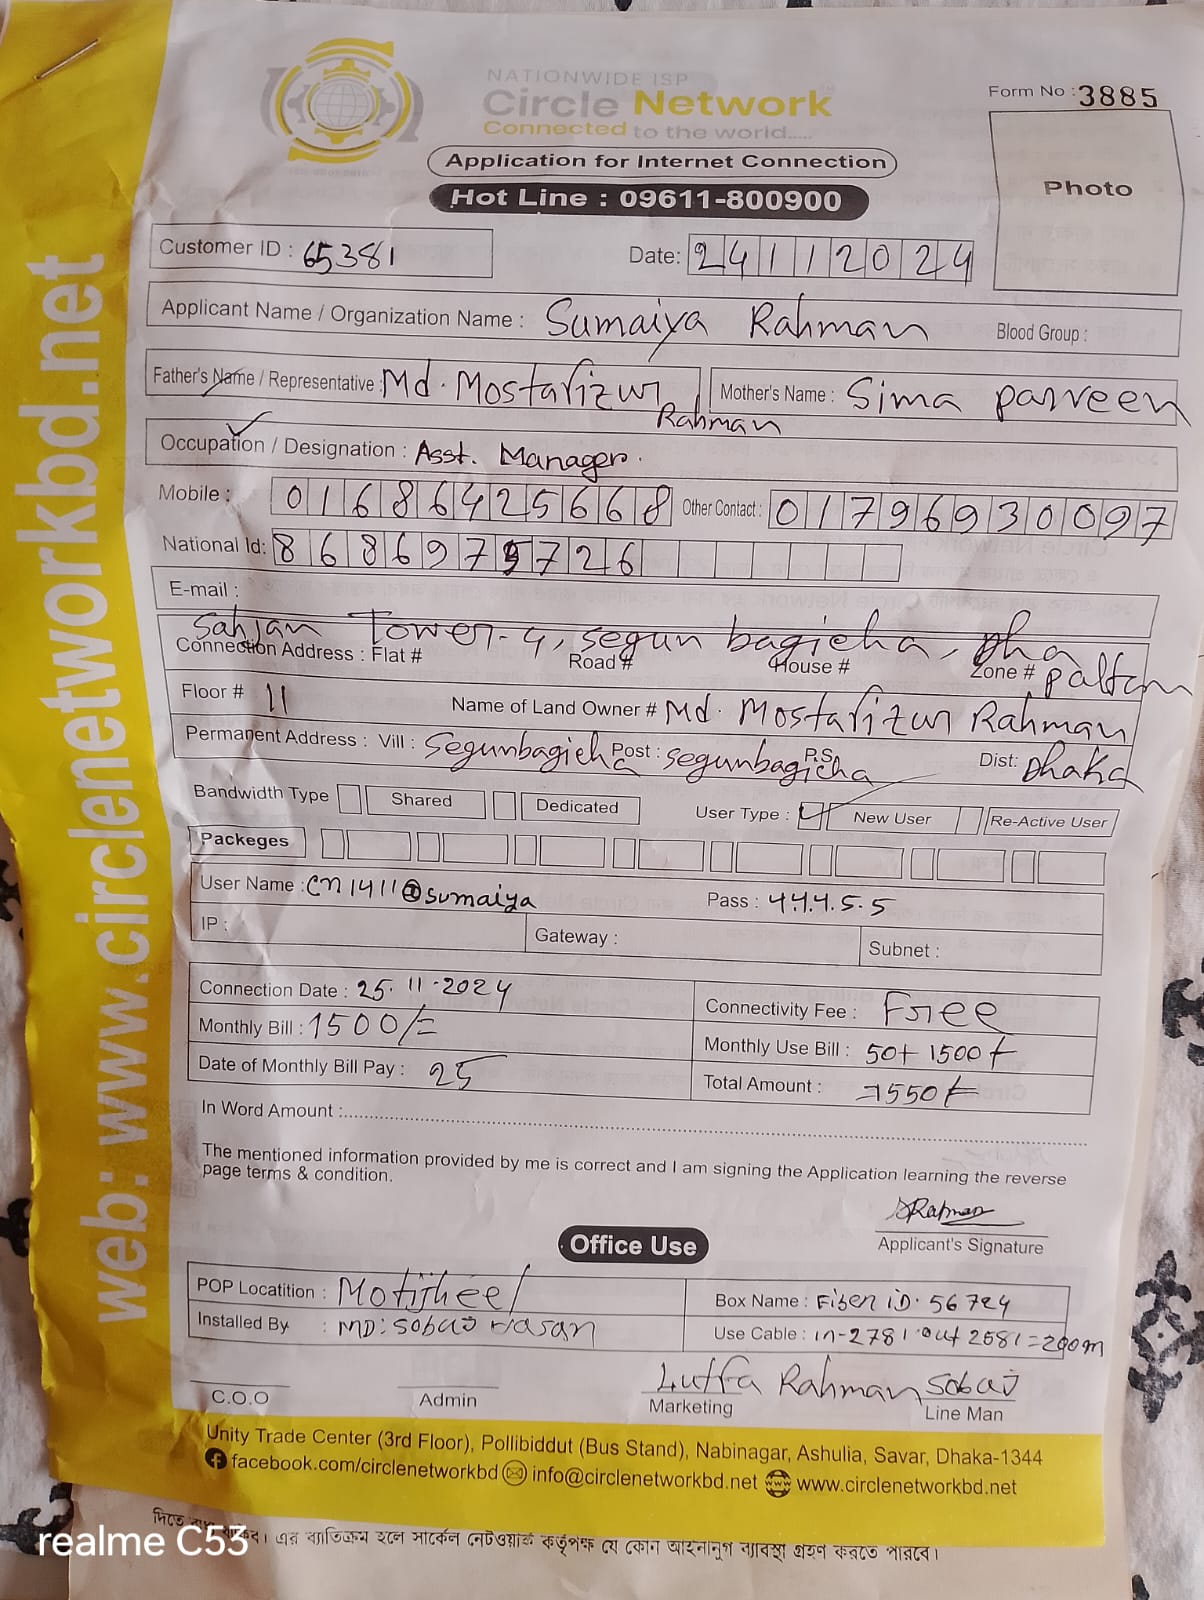 NATIONWIDE ISP
Circle Network
Connected to the world.....
Form No : 3885
Photo
Application for Internet Connection
Hot Line : 09611-800900
web: www.circlenetworkbd.net
Customer ID : 65381
Date: 24112024
Applicant Name / Organization Name : Sumaiya Rahman Blood Group :
Father's Name / Representative : Md. Mostafizur Rahman Mother's Name : Sima parveen
Occupation / Designation : Asst. Manager.
Mobile : 01686425668 Other Contact : 01796930097
National Id: 8686975726
E-mail :
Sahjan Tower-4, segun bagicha, Dha
Connection Address : Flat # Road # House # Zone # paltan
Floor # 11 Name of Land Owner # Md. Mostafizur Rahman
Permanent Address : Vill : Segunbagicha Post : segunbagicha P.S Dist: Dhaka
Bandwidth Type Shared Dedicated User Type : New User Re-Active User
Packeges
User Name : cn1411@sumaiya Pass : 4.4.4.5.5
IP : Gateway : Subnet :
Connection Date : 25.11-2024 Connectivity Fee : Free
Monthly Bill : 1500/= Monthly Use Bill : 50+1500
Date of Monthly Bill Pay : 25 Total Amount : =1550
In Word Amount :
The mentioned information provided by me is correct and I am signing the Application learning the reverse
page terms & condition.
SRahman
Applicant's Signature
Office Use
POP Locatition : Motijheel Box Name : Fiber iD. 56724
Installed By : MD: Sobuj Hasan Use Cable : in-2781 out 2581=200m
Lutfa Rahman Sobuj
C.O.O Admin Marketing Line Man
Unity Trade Center (3rd Floor), Pollibiddut (Bus Stand), Nabinagar, Ashulia, Savar, Dhaka-1344
facebook.com/circlenetworkbd info@circlenetworkbd.net www.circlenetworkbd.net
দিতে থাকবে। এর ব্যাতিক্রম হলে সার্কেল নেটওয়ার্ক কর্তৃপক্ষ যে কোন আইনানুগ ব্যাবস্থা গ্রহণ করতে পারবে।
realme C53